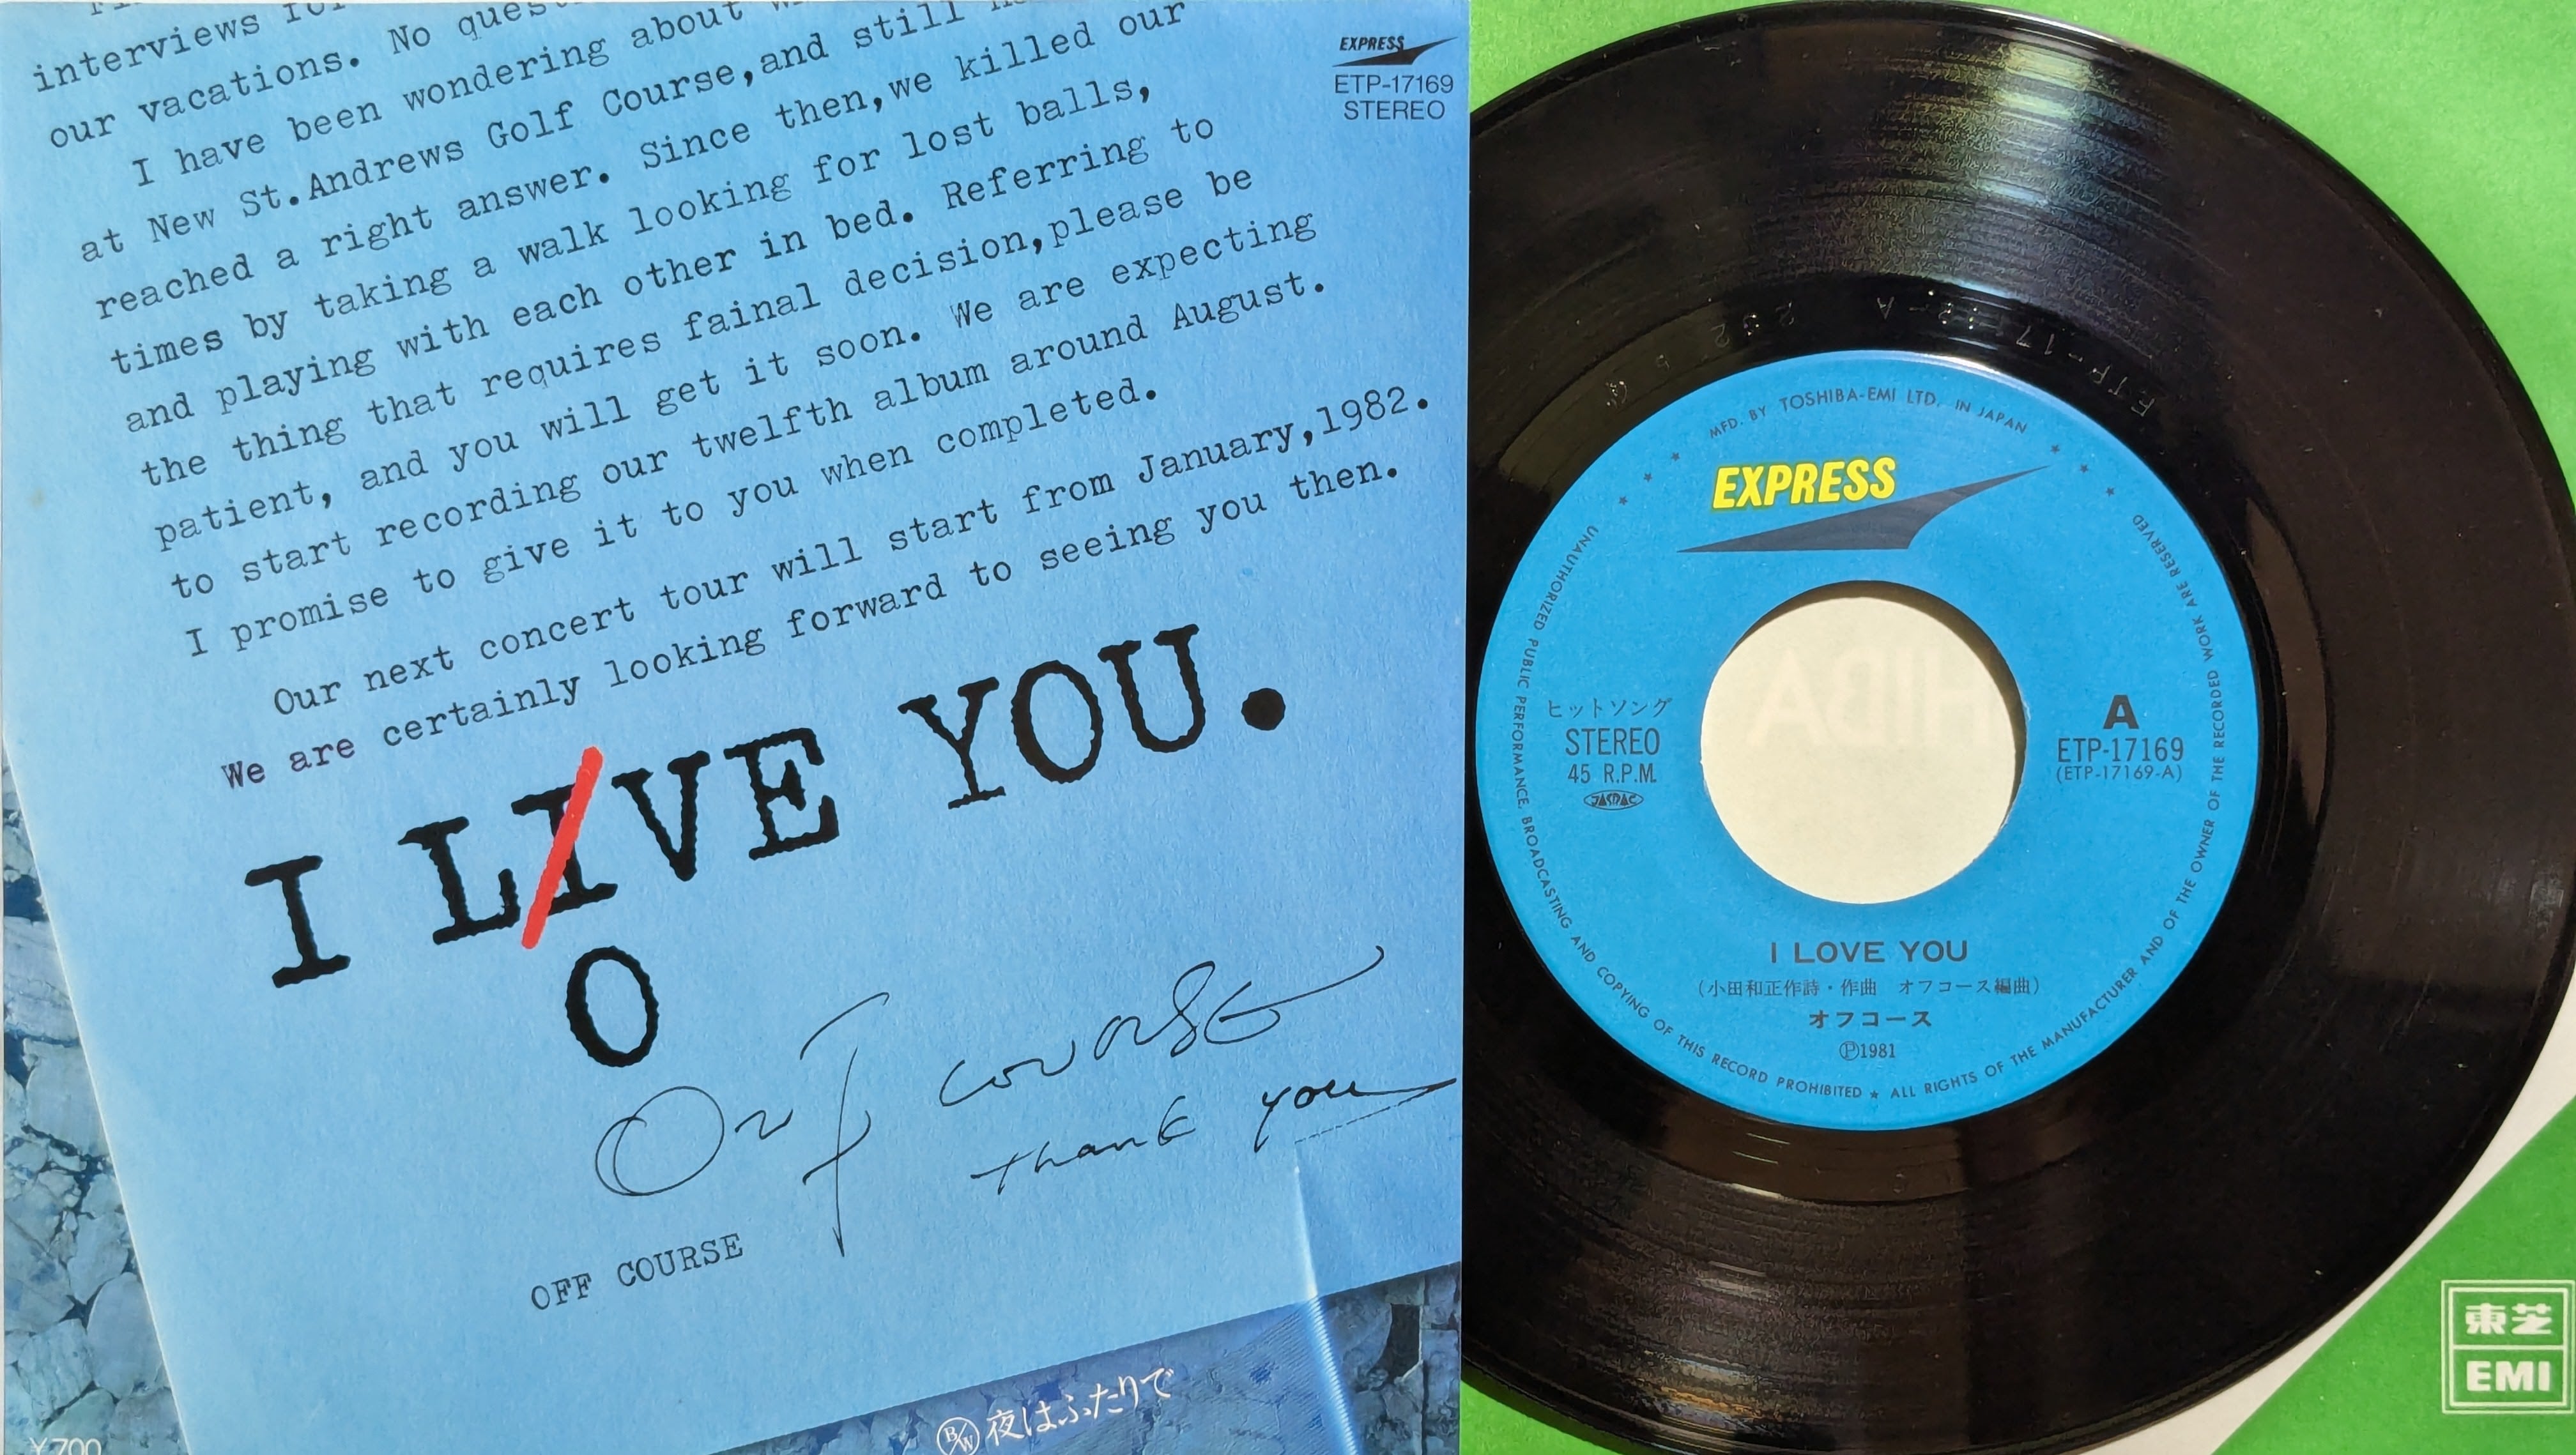 interviews
our vacations. No
I have been wondering about
at New St.Andrews Golf Course,and still
reached a right answer. Since then,we killed our
times by taking a walk looking for lost balls,
and playing with each other in bed. Referring to
the thing that requires fainal decision,please be
patient, and you will get it soon. We are expecting
to start recording our twelfth album around August.
I promise to give it to you when completed.
Our next concert tour will start from January,1982.
We are certainly looking forward to seeing you then.
I LIVE YOU.
O
Off course
thank you
OFF COURSE
B/W 夜はふたりで
¥700
EXPRESS
ETP-17169
STEREO
MFD. BY TOSHIBA-EMI LTD. IN JAPAN
EXPRESS
UNAUTHORIZED PUBLIC PERFORMANCE, BROADCASTING AND COPYING OF THIS RECORD PROHIBITED ★ ALL RIGHTS OF THE MANUFACTURER AND OF THE OWNER OF THE RECORDED WORK ARE RESERVED
ヒットソング
STEREO
45 R.P.M.
JASRAC
A
ETP-17169
(ETP-17169-A)
I LOVE YOU
(小田和正作詩・作曲 オフコース編曲)
オフコース
Ⓟ1981
東芝
EMI